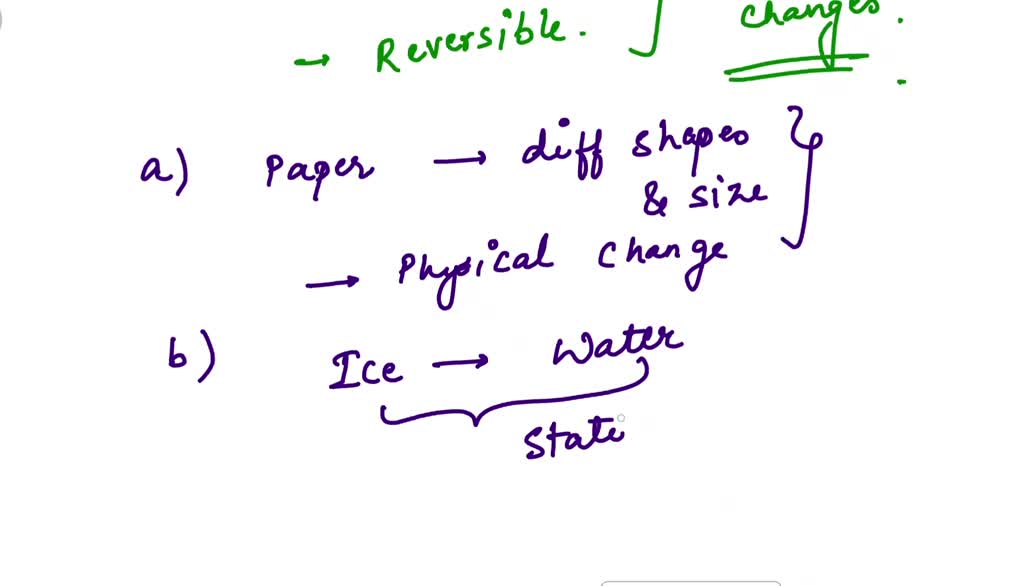 changes.
→ Reversible.
a) Paper → diff shapes
& size
→ Physical change
b) Ice → Water
State